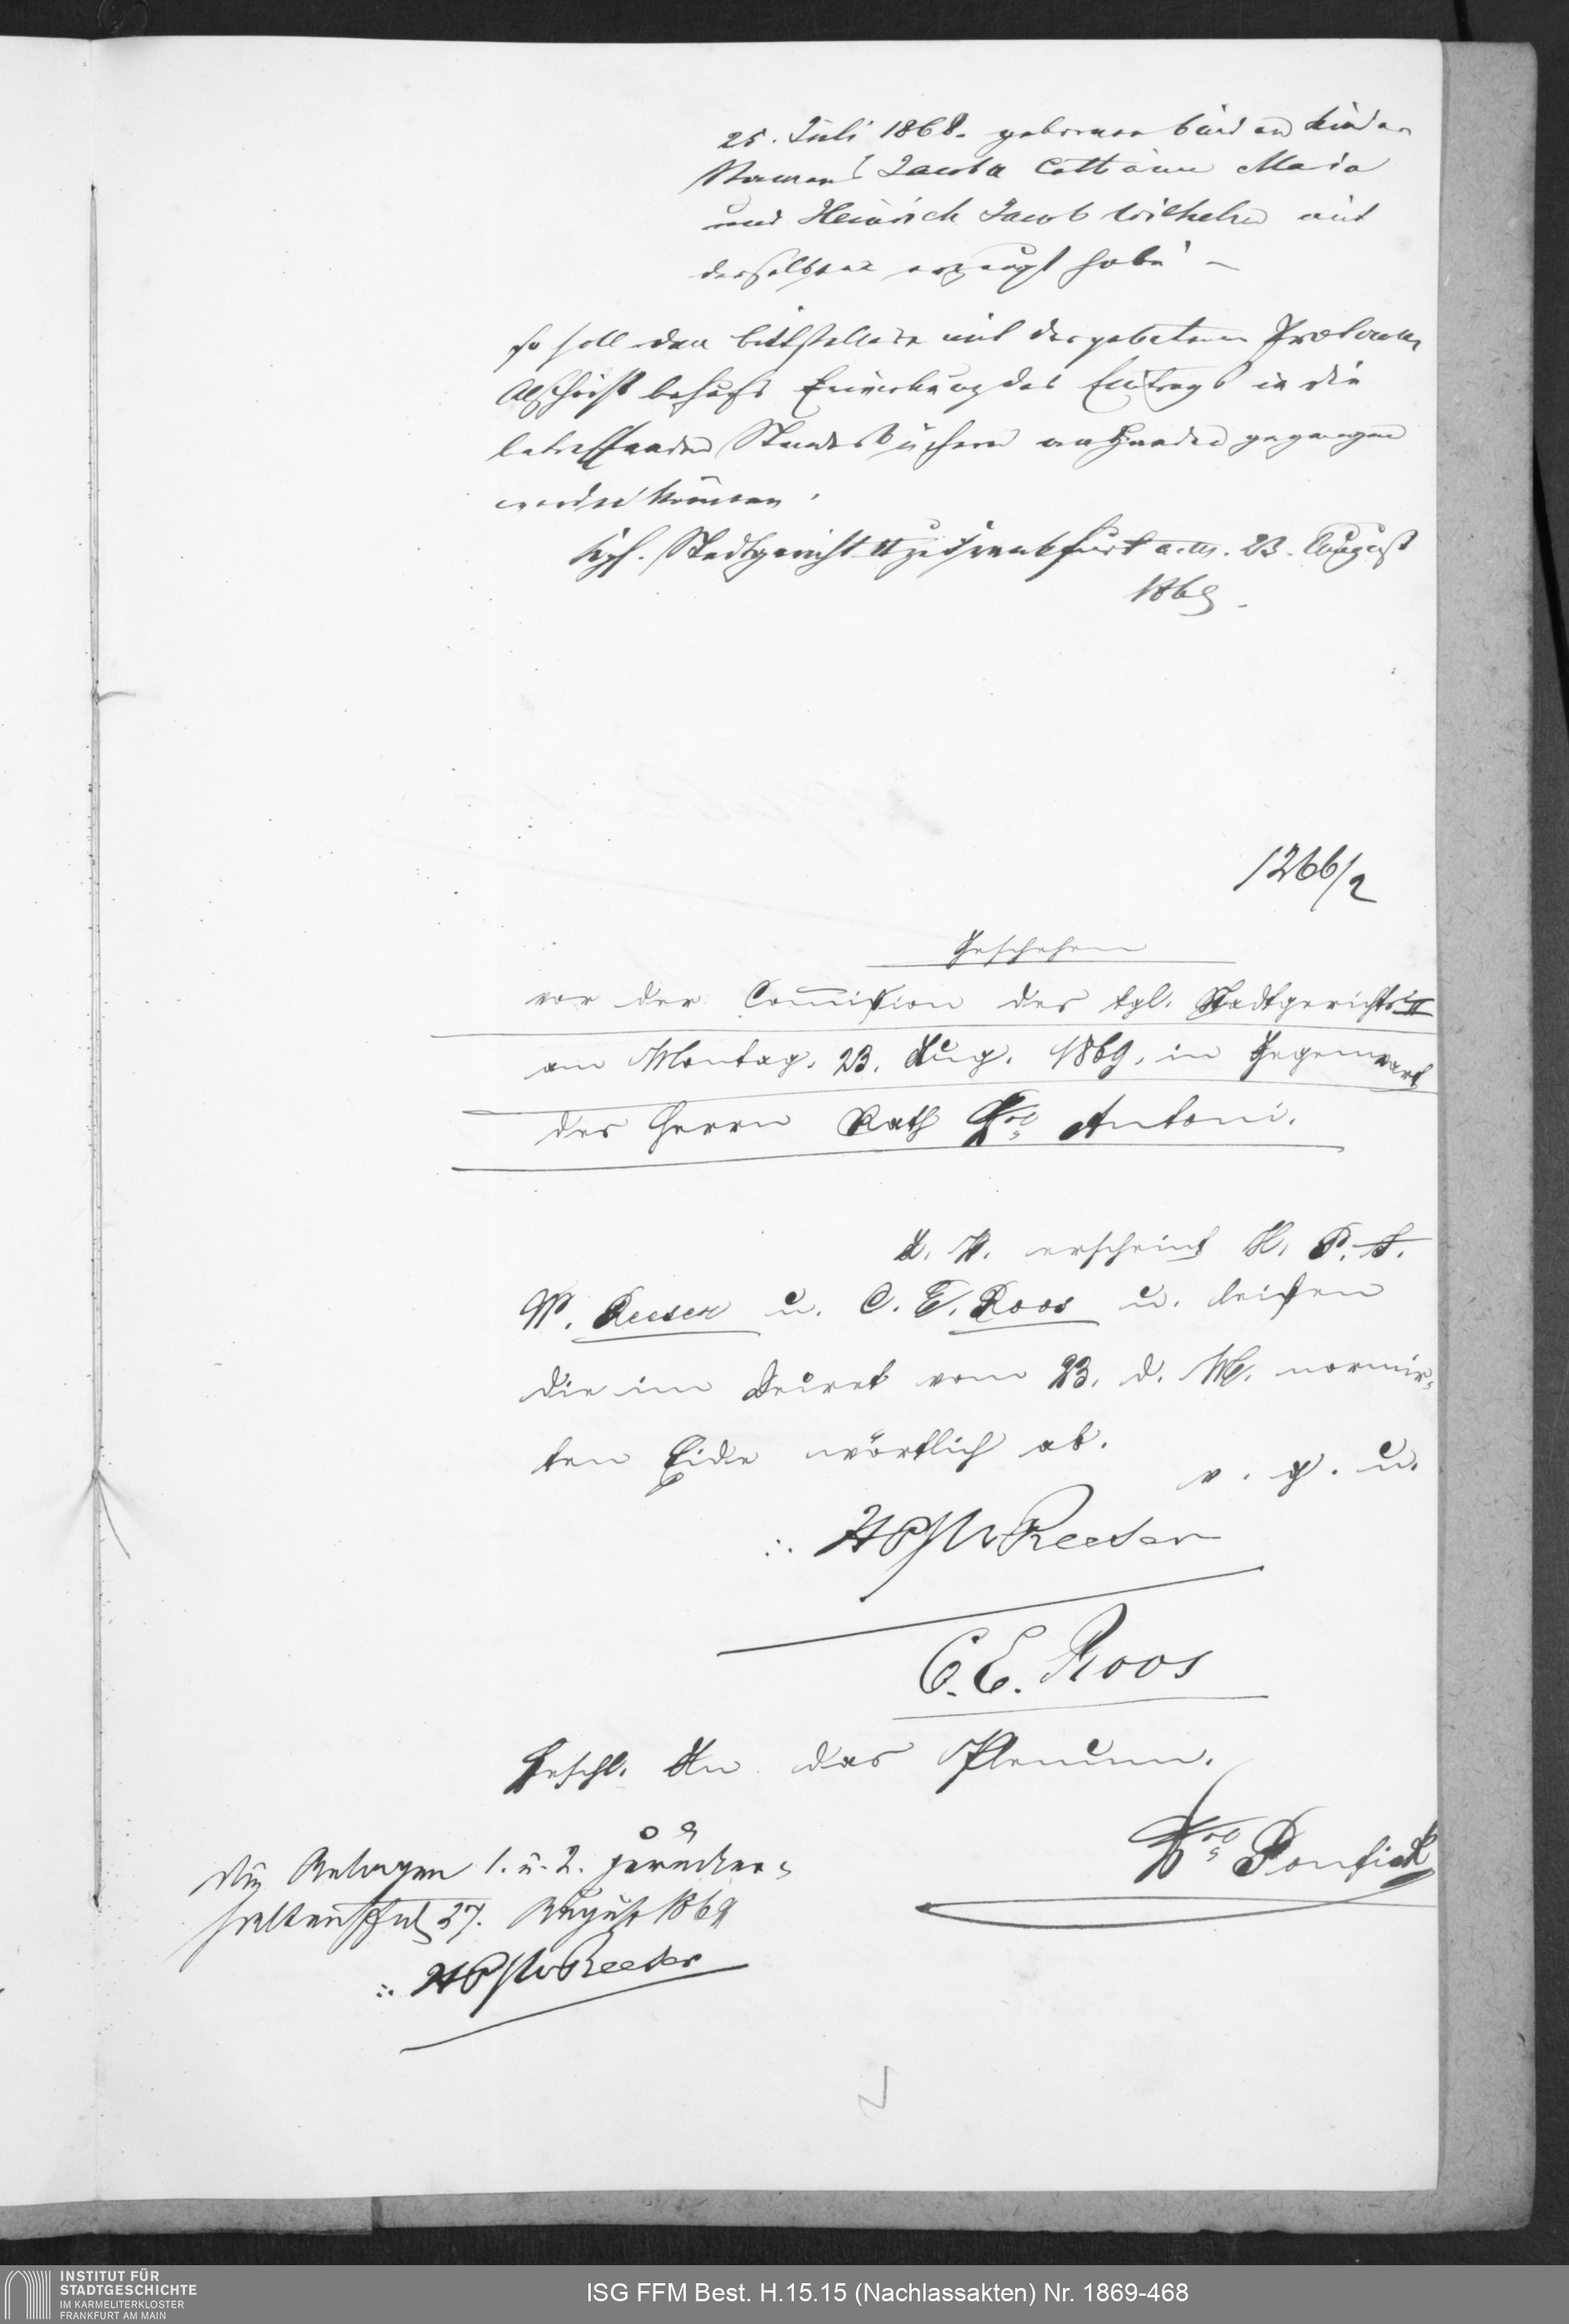 25. Juli 1868. geborenen beiden Kinder
Namens Jacoba Cattarina Maria
und Heinrich Jacob Wilhelm mit
derselben erzeugt habe –
so soll dem Bittsteller mit der gebetenen Protocoll
Abschrift behufs Erwirkung des Eintrags in die
betreffenden Standesbücher an Handen gegangen
werden können.
Kgl. Stadtgericht II zu Frankfurt a.M. 23. August
1869.
1266/2
Geschehen
vor der Commission des kgl. Stadtgerichts II
am Montag, 23. Aug. 1869, in Gegenwart
des Herrn Rath Dr. Antoni.
erscheint H. P. S.
W. Reeser u. C. E. Roos u. leisten
die im Decret vom 23. d. M. normir-
ten Eide wörtlich ab.
v. g. u.
HPSW Reeser
C. E. Roos
Beschl. An das Plenum.
Dr. Ponfick
Die Anlagen 1. u. 2. zurücker-
halten 27. August 1869
HPSW Reeser
INSTITUT FÜR
STADTGESCHICHTE
IM KARMELITERKLOSTER
FRANKFURT AM MAIN
ISG FFM Best. H.15.15 (Nachlassakten) Nr. 1869-468